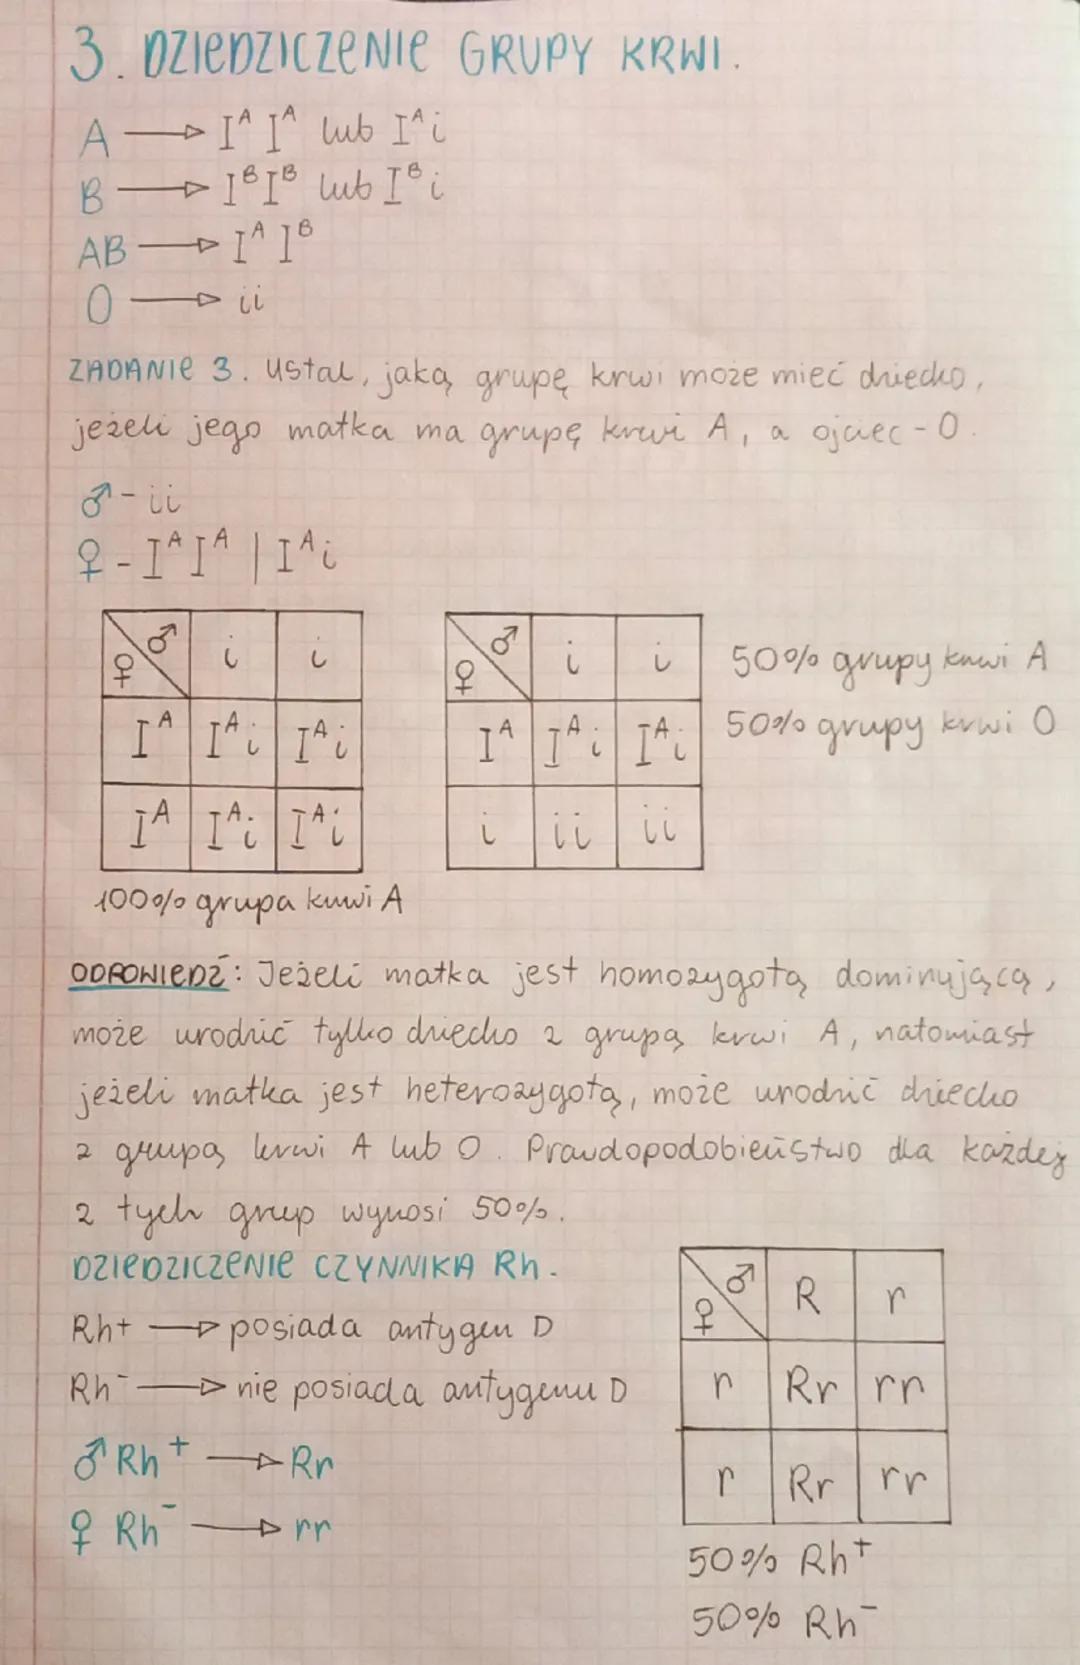 3. DZIEDZICZENIE GRUPY KRWI.
A → Iᴬ Iᴬ lub Iᴬ i
B → Iᴮ Iᴮ lub Iᴮ i
AB → Iᴬ Iᴮ
0 → ii
ZADANIE 3. Ustal, jaką grupę krwi może mieć dziecko,
jeżeli jego matka ma grupę krwi A, a ojciec - 0.
♂ - ii
♀ - Iᴬ Iᴬ | Iᴬ i
♀ ♂ i i
Iᴬ Iᴬ i Iᴬ i
Iᴬ Iᴬ i Iᴬ i
100% grupa krwi A
♀ ♂ i i
Iᴬ Iᴬ i Iᴬ i
i ii ii
50% grupy krwi A
50% grupy krwi 0
ODPOWIEDŹ: Jeżeli matka jest homozygotą dominującą,
może urodzić tylko dziecko z grupą krwi A, natomiast
jeżeli matka jest heterozygotą, może urodzić dziecko
z grupą krwi A lub 0. Prawdopodobieństwo dla każdej
z tych grup wynosi 50%.
DZIEDZICZENIE CZYNNIKA Rh.
Rh+ → posiada antygen D
Rh⁻ → nie posiada antygenu D
♂ Rh⁺ → Rr
♀ Rh⁻ → rr
♀ ♂ R r
r Rr rr
r Rr rr
50% Rh⁺
50% Rh⁻